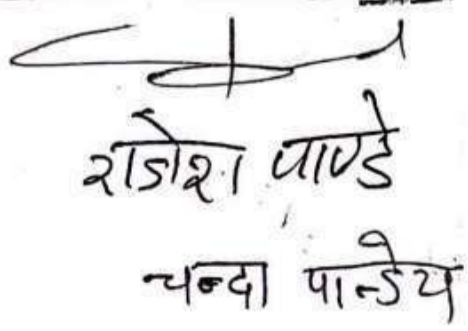 राजेश पाण्डे
चन्दा पान्डेय